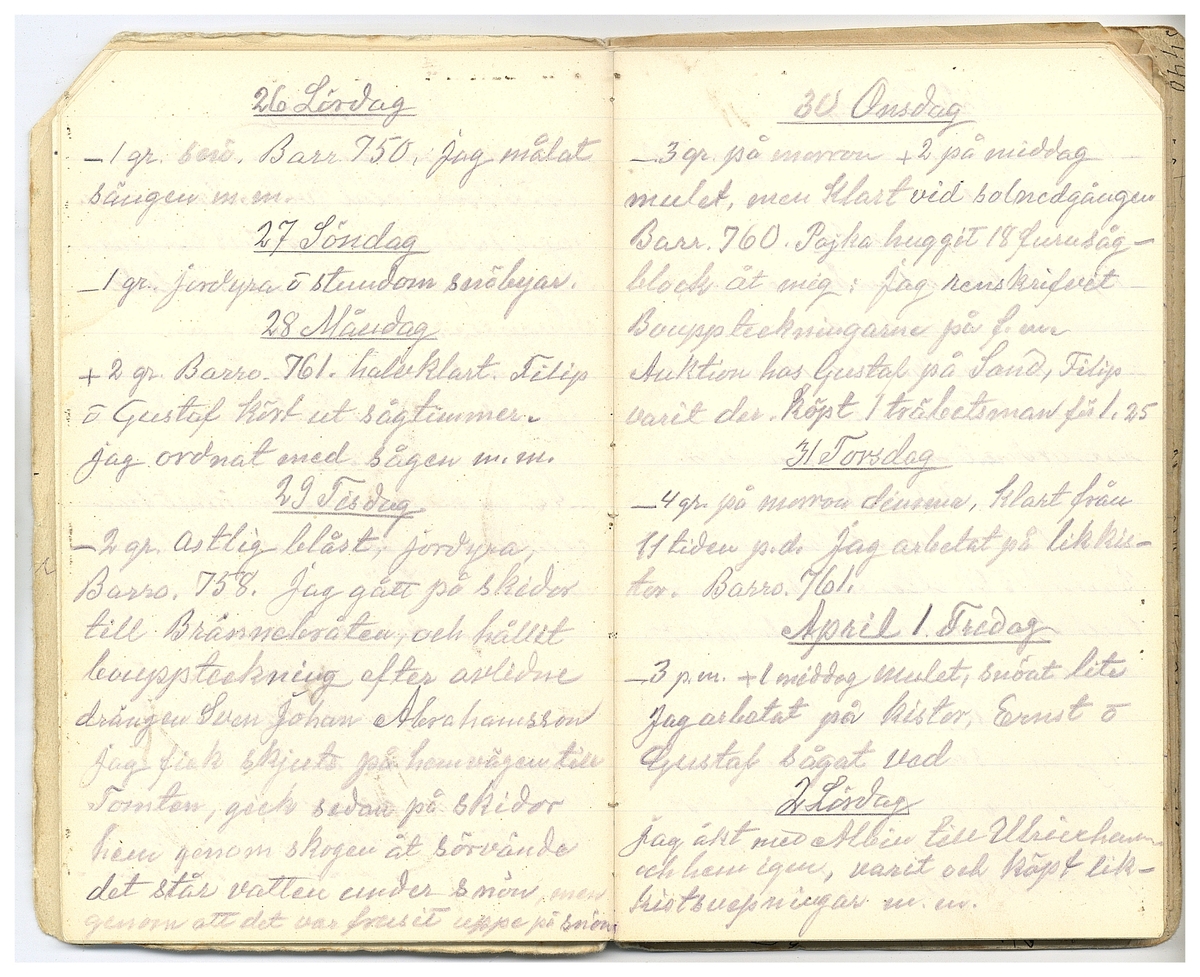 26 Lördag
-1 gr. snö. Barr. 750. Jag målat
sängen m.m.
27 Söndag
-1 gr. jordyra o stundom snöbyar.
28 Måndag
+2 gr. Barro. 761. halvklart. Filip
o Gustaf kört ut sågtimmer.
jag ordnat med sågen m.m.
29 Tisdag
-2 gr. ostlig blåst, jordyra,
Barro. 758. Jag gått på skidor
till Brännebråten, och hållit
bouppteckning efter avlidne
drängen Sven Johan Abrahamsson
jag fick skjuts på hemvägen till
Tomten, gick sedan på skidor
hem genom skogen åt
det står vatten under snön, men
genom att det var frusit uppe på snön
30 Onsdag
-3 gr. på morron +2 på middag
mulet, men klart vid solnedgången
Barr. 760. Pojka huggit 18 furusåg-
block åt mig. Jag renskrifvit
Bouppteckningarne på f.m.
Auktion hos Gustaf på Sand, Filip
varit der. Köpt 1 träbetsman för 1.25
31 Torsdag
-4 gr. på morron dimma, klart från
11 tiden p.d. Jag arbetat på likkis-
tor. Barro. 761.
April 1. Fredag
-3 p.m. +1 middag mulet, snöat lite
Jag arbetat på kistor, Ernst o
Gustaf sågat ved
2 Lördag
jag åkt med Albin till Ulricehamn
och hem igen, varit och köpt lik-
kistsvepningar m.m.